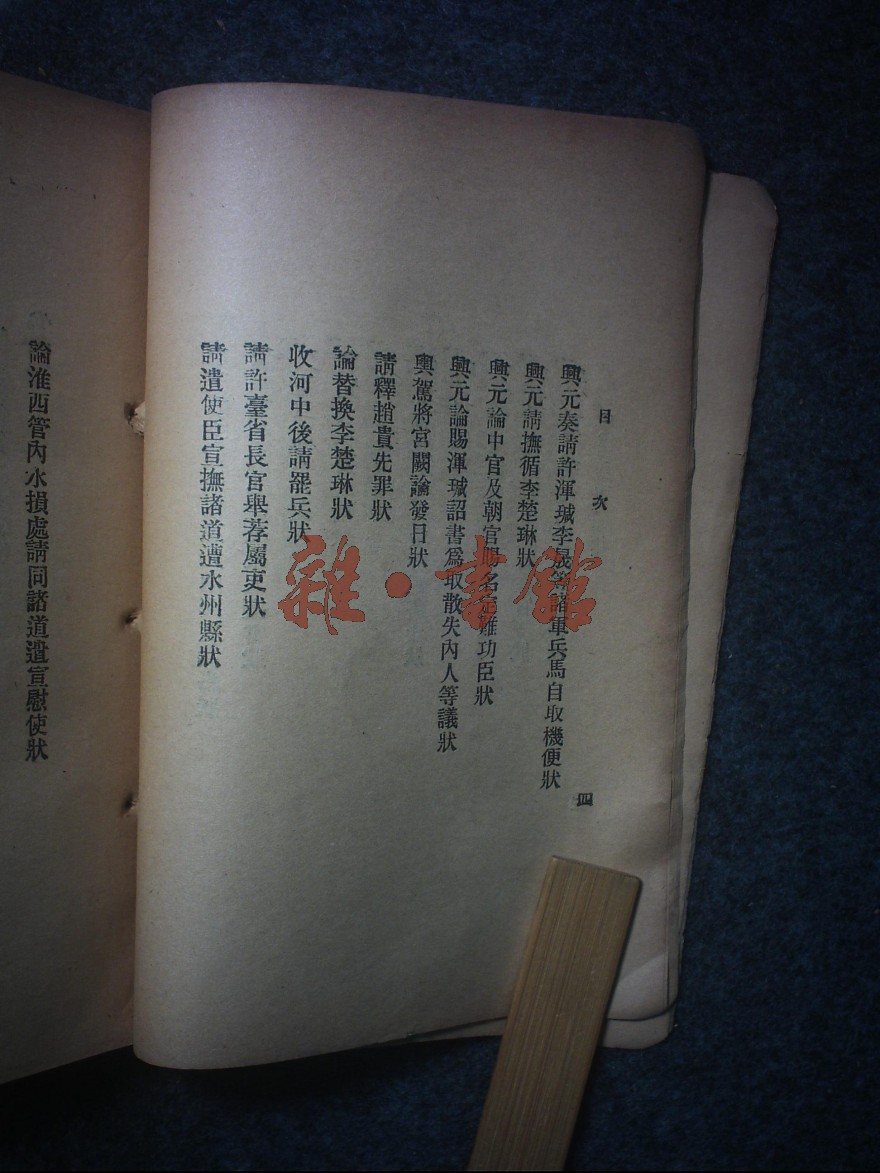 目次 四
興元奏請許渾瑊李晟等諸軍兵馬自取機便狀
興元請撫循李楚琳狀
興元論中官及朝官賜名定難功臣狀
興元論賜渾瑊詔書爲取散失內人等議狀
輿駕將宮闕論發日狀
請釋趙貴先罪狀
論替換李楚琳狀
收河中後請罷兵狀
請許臺省長官舉荐屬吏狀
請遣使臣宣撫諸道遭水州縣狀
論淮西管內水損處請同諸道遣宣慰使狀
雜·書館